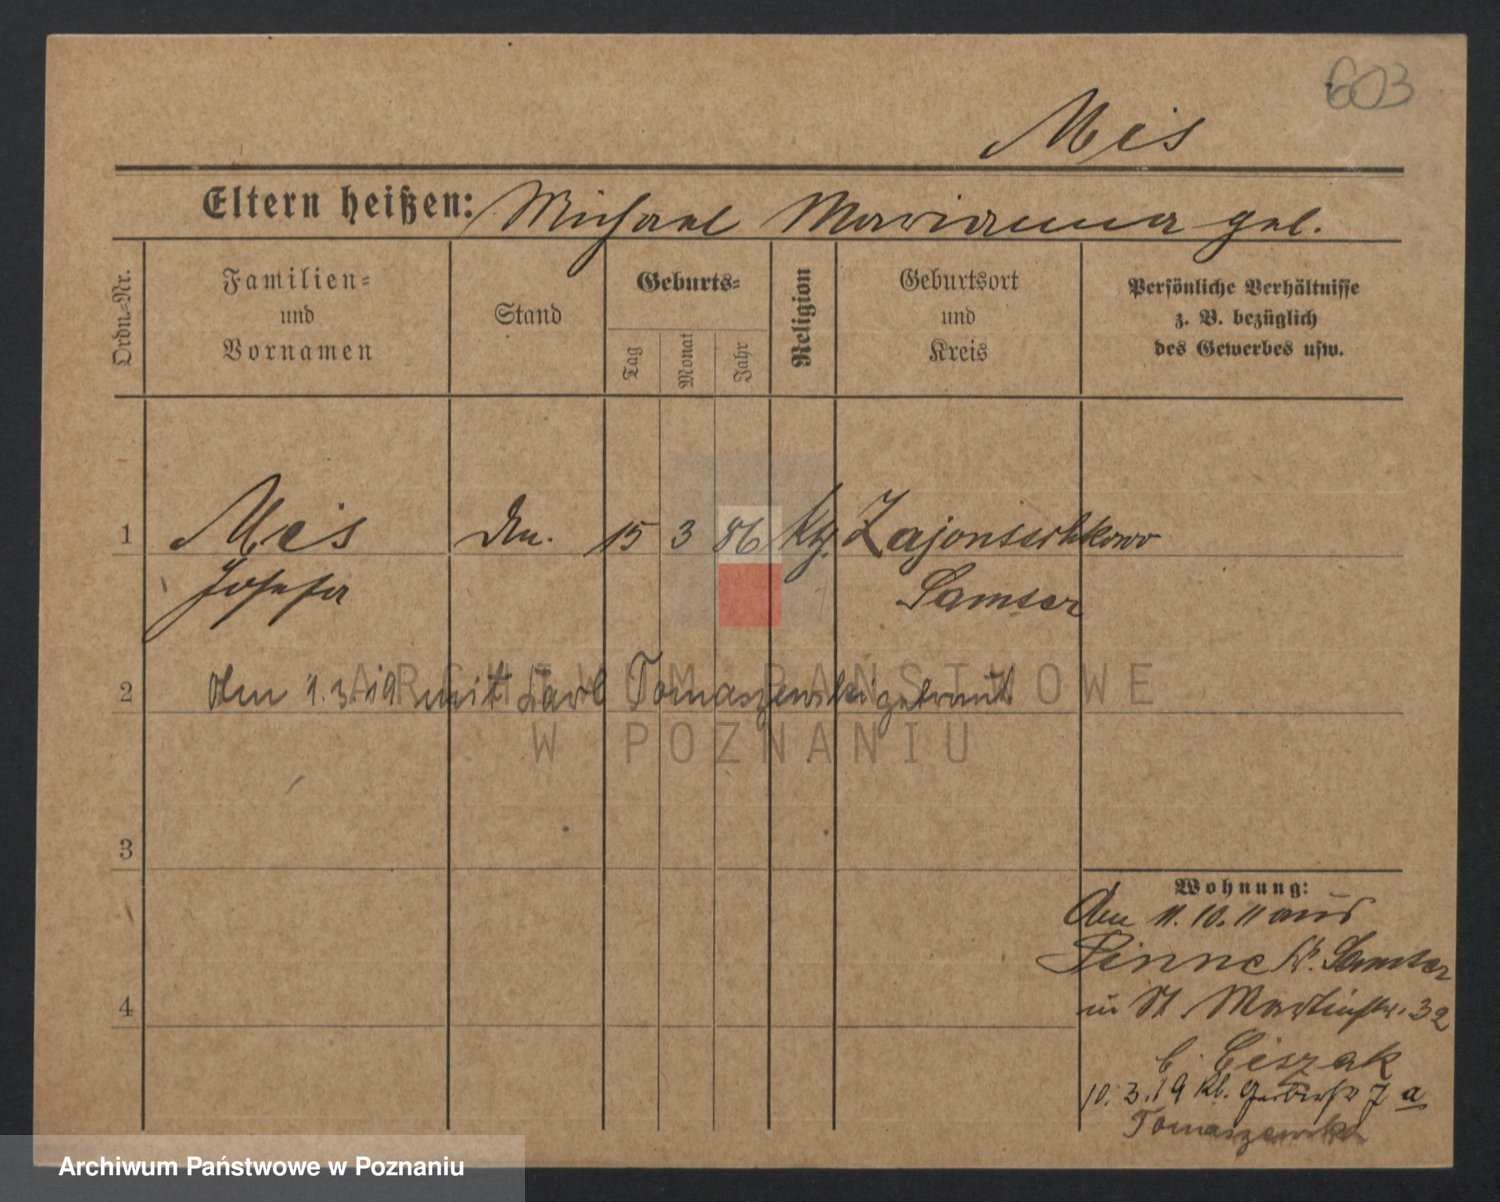 603
Meis
Eltern heißen: Michael Marianna geb.
Ordn.-Nr.
Familien- und Vornamen
Stand
Geburts-
Tag
Monat
Jahr
Religion
Geburtsort und Kreis
Persönliche Verhältnisse z. B. bezüglich des Gewerbes usw.
1 Meis 15 3 86 kth. Zajontschkowo
Josefa Samter
2 Am 1.3.19 mit Karl Tomaszewski getraut
3
4
Wohnung:
Am 11.10.11 aus
Pinne Kr. Samter
in St. Martinstr. 32
b. Ciszak
10.3.19 kl. Gerberstr 7 a
Tomaszewski
ARCHIWUM PAŃSTWOWE
W POZNANIU
Archiwum Państwowe w Poznaniu